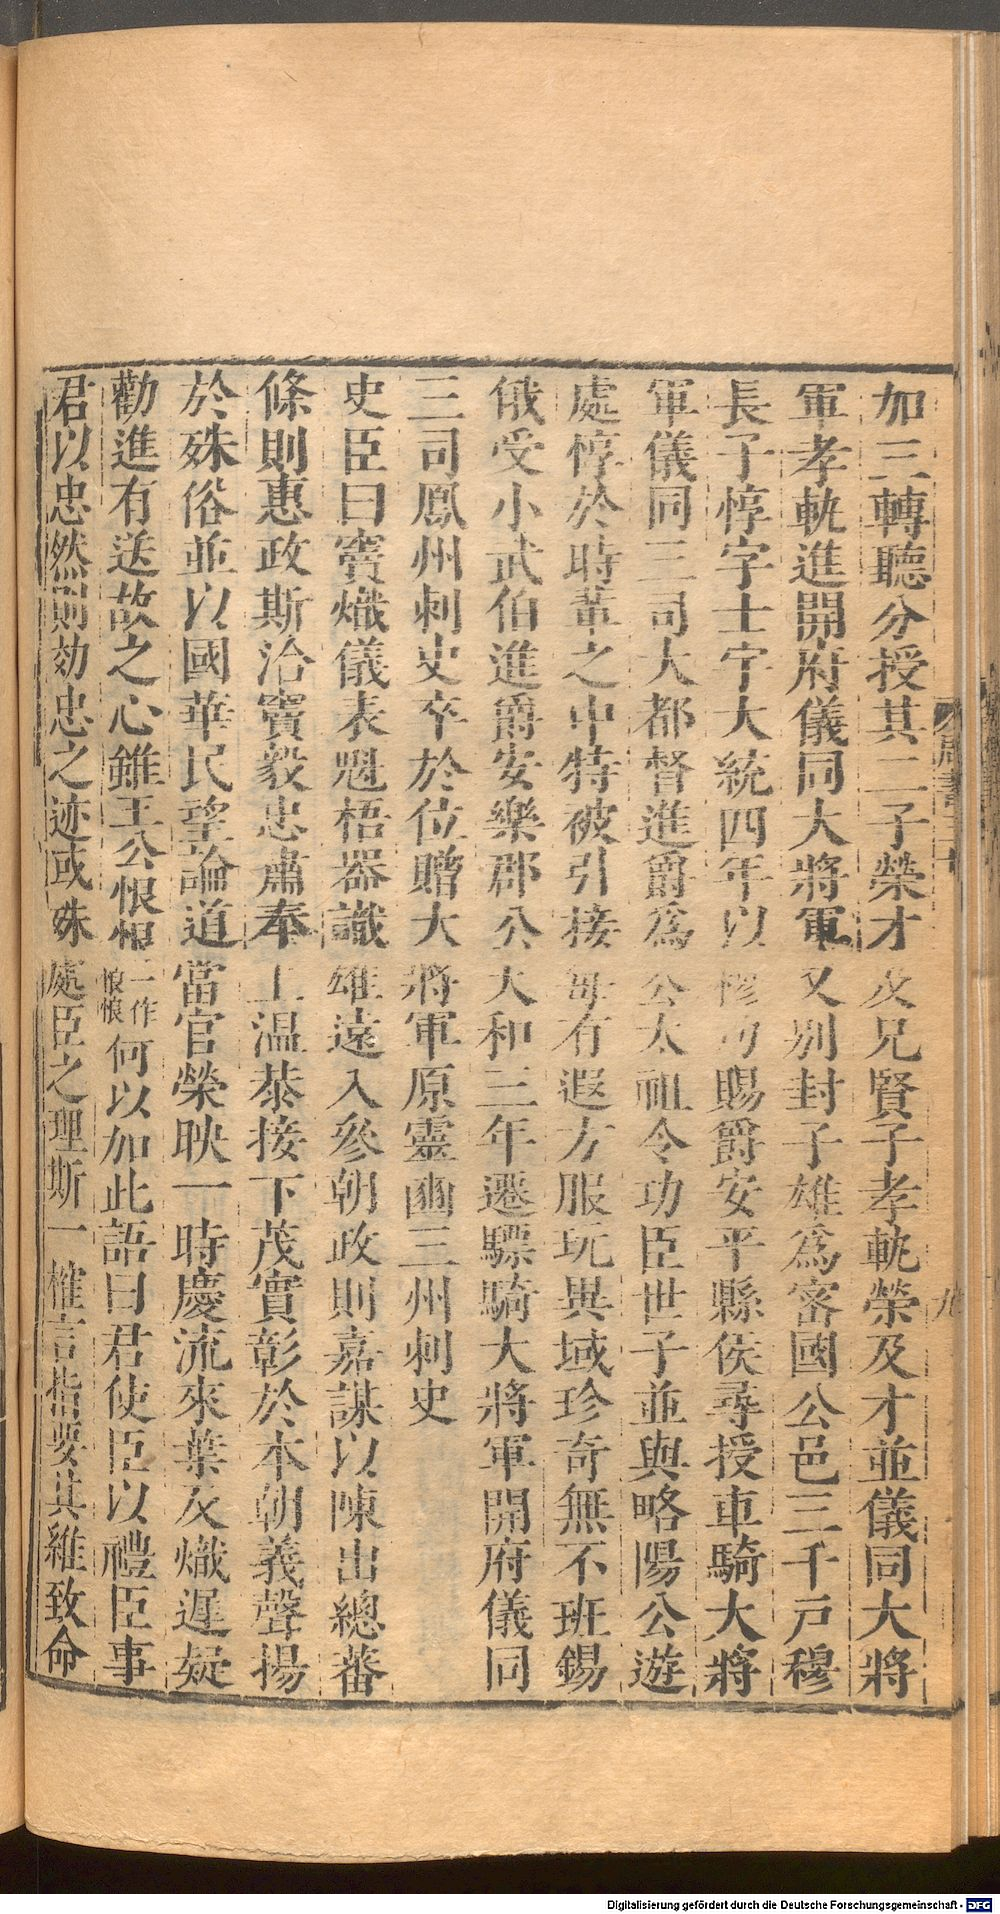 加三轉聽分授其二子榮才及兄賢子孝軌榮及才並儀同大將
軍孝軌進開府儀同大將軍又別封子雄為密國公邑三千戸穆
長子惇字士宇大統四年以穆功賜爵安平縣侯尋授車騎大將
軍儀同三司大都督進爵為公太祖令功臣世子並與略陽公遊
處惇於時輩之中特被引接每有遐方服玩異域珍奇無不班錫
俄受小武伯進爵安樂郡公天和三年遷驃騎大將軍開府儀同
三司鳳州刺史卒於位贈大將軍原靈豳三州刺史
史臣曰竇熾儀表魁梧器識雄遠入參朝政則嘉謀以陳出總蕃
條則惠政斯洽竇毅忠肅奉上温恭接下茂實彰於本朝義聲揚
於殊俗並以國華民望論道當官榮映一時慶流來葉及熾遲疑
勸進有送故之心雖王公恨恨一作悢悢何以加此語曰君使臣以禮臣事
君以忠然則効忠之迹或殊處臣之理斯一榷言指要其維致命
九
Digitalisierung gefördert durch die Deutsche Forschungsgemeinschaft - DFG